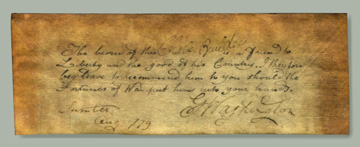 The bearer of this is a friend to
Liberty and the good of his Country. I therefore
beg leave to recommend him to you should the
Fortunes of War put him into your hands.
G Washington
Aug 179